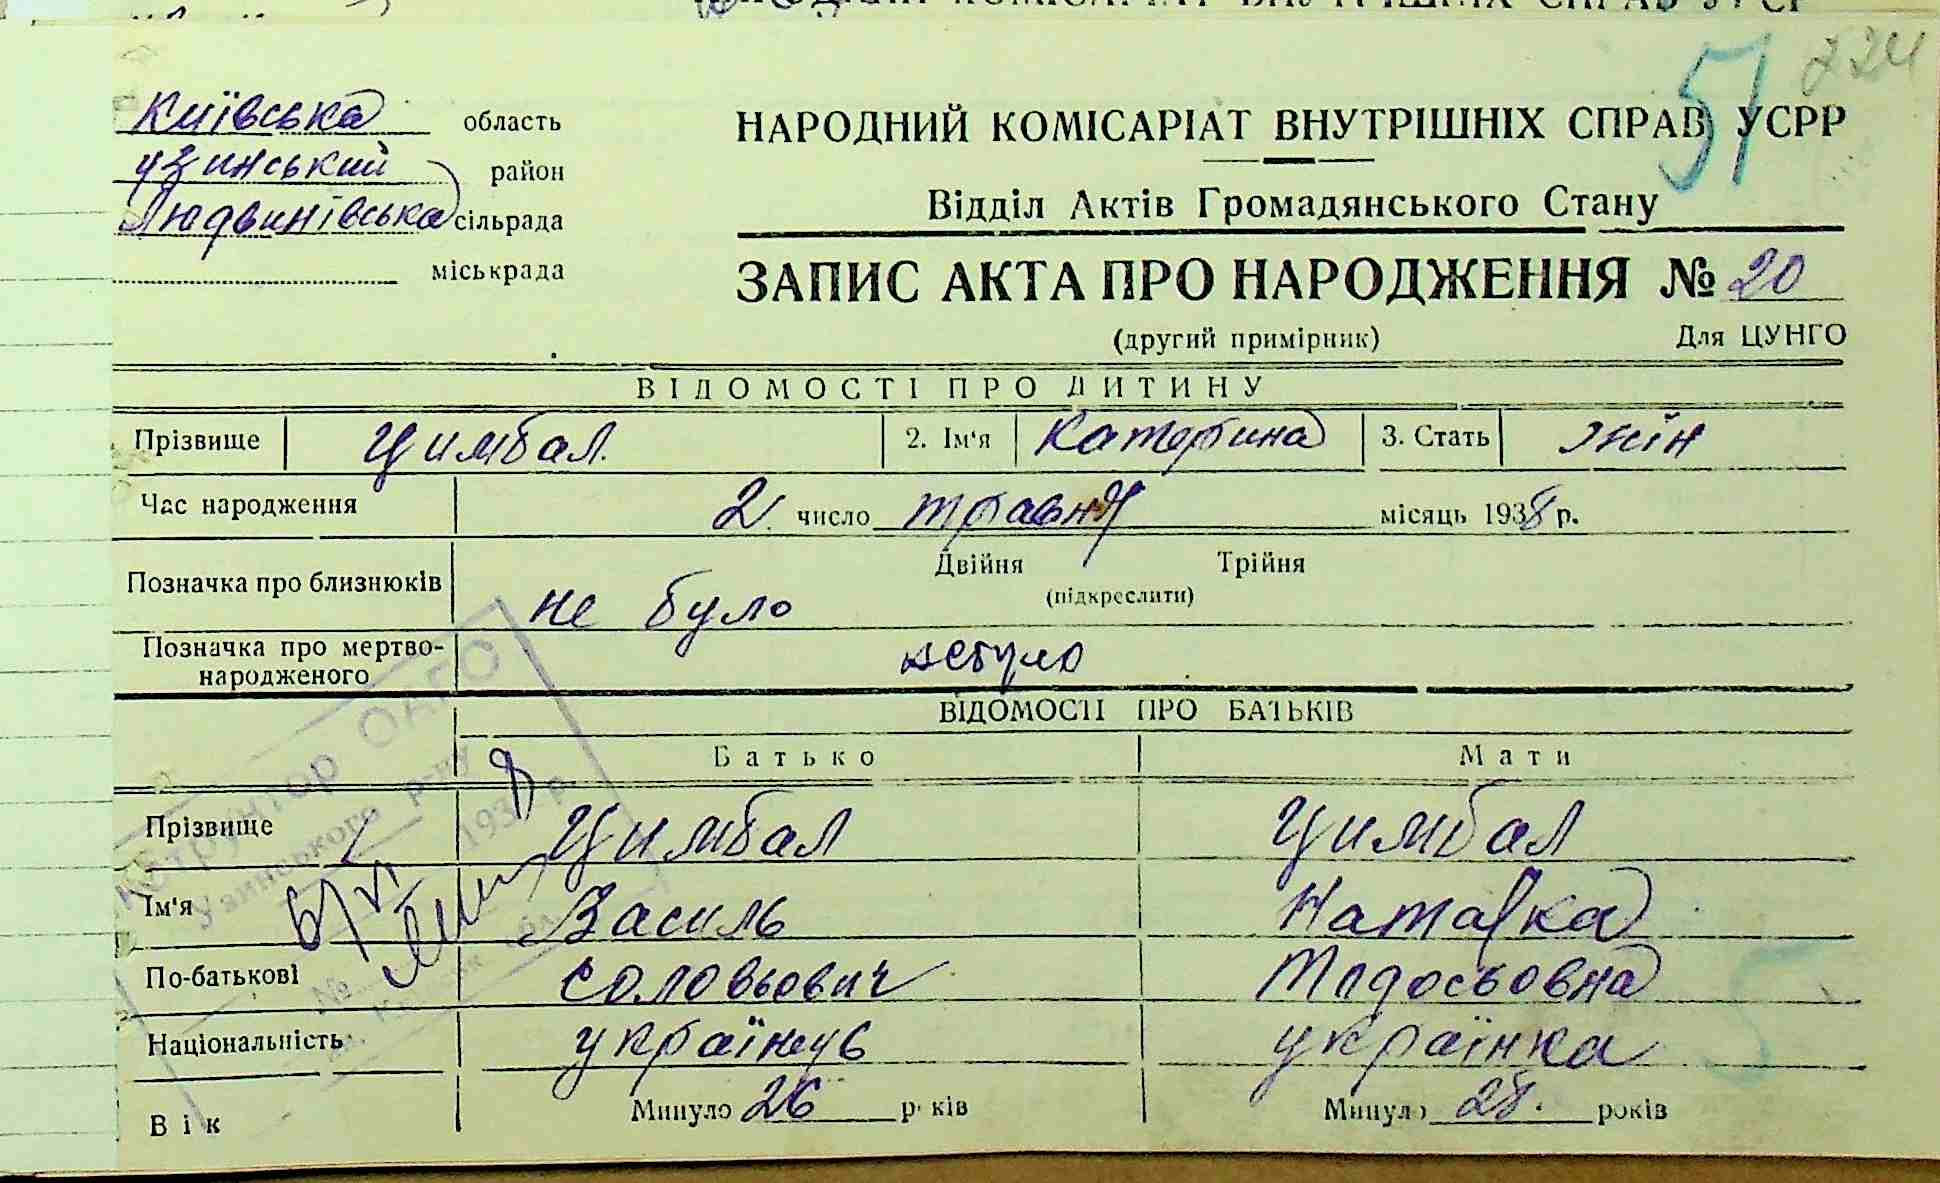 Київська область
Узинський район
Людвинівська сільрада
міськрада
51
224
НАРОДНИЙ КОМІСАРІАТ ВНУТРІШНІХ СПРАВ УСРР
Відділ Актів Громадянського Стану
ЗАПИС АКТА ПРО НАРОДЖЕННЯ № 20
(другий примірник) Для ЦУНГО
ВІДОМОСТІ ПРО ДИТИНУ
Прізвище Цимбал. 2. Ім'я Катерина 3. Стать жін
Час народження 2 число травня місяць 1938 р.
Позначка про близнюків не було Двійня Трійня
(підкреслити)
Позначка про мертво-
народженого небуло
ВІДОМОСТІ ПРО БАТЬКІВ
Батько Мати
Прізвище Цимбал Цимбал
Ім'я Василь Наталка
По-батькові Соловьович Тодосьовна
Національність українць українка
Вік Минуло 26 років Минуло 28. років
Узинського р-ну
193 8 р.
№